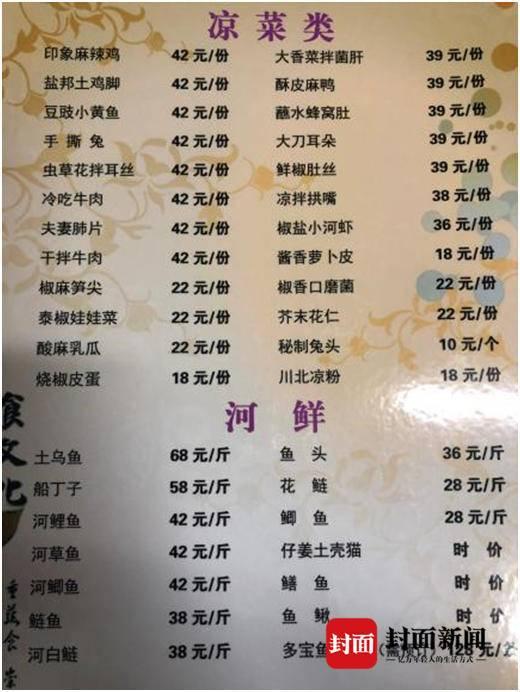 凉菜类
印象麻辣鸡 42 元/份 大香菜拌菌肝 39 元/份
盐邦土鸡脚 42 元/份 酥皮麻鸭 39 元/份
豆豉小黄鱼 42 元/份 蘸水蜂窝肚 39 元/份
手 撕 兔 42 元/份 大刀耳朵 39 元/份
虫草花拌耳丝 42 元/份 鲜椒肚丝 39 元/份
冷吃牛肉 42 元/份 凉拌拱嘴 38 元/份
夫妻肺片 42 元/份 椒盐小河虾 36 元/份
干拌牛肉 42 元/份 酱香萝卜皮 18 元/份
椒麻笋尖 22 元/份 椒香口磨菌 22 元/份
泰椒娃娃菜 22 元/份 芥末花仁 22 元/份
酸麻乳瓜 22 元/份 秘制兔头 10 元/个
烧椒皮蛋 18 元/份 川北凉粉 18 元/份
河 鲜
土乌鱼 68 元/斤 鱼 头 36 元/斤
船丁子 58 元/斤 花 鲢 28 元/斤
河鲤鱼 42 元/斤 鲫 鱼 28 元/斤
河草鱼 42 元/斤 仔姜土壳猫 时 价
河鲫鱼 42 元/斤 鳝 鱼 时 价
鲢鱼 38 元/斤 鱼 鳅 时 价
河白鲢 38 元/斤 多宝鱼 (需预订) 128 元/
食文化
封面 封面新闻
亿万年轻人的生活方式